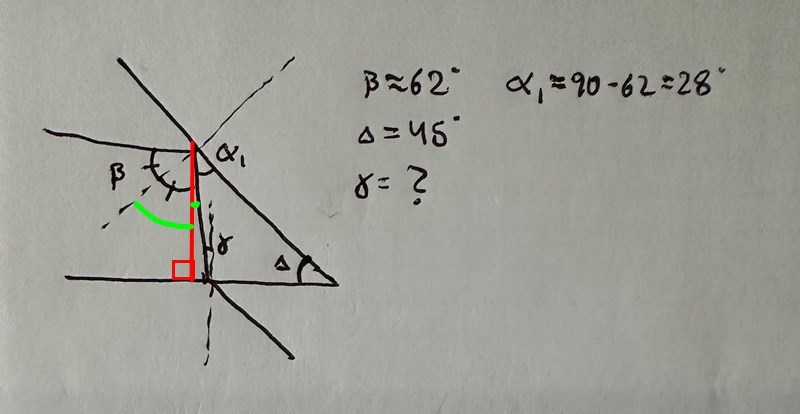 β≈62° α₁≈90-62=28°
Δ=45°
γ=?
α₁
β
γ
Δ